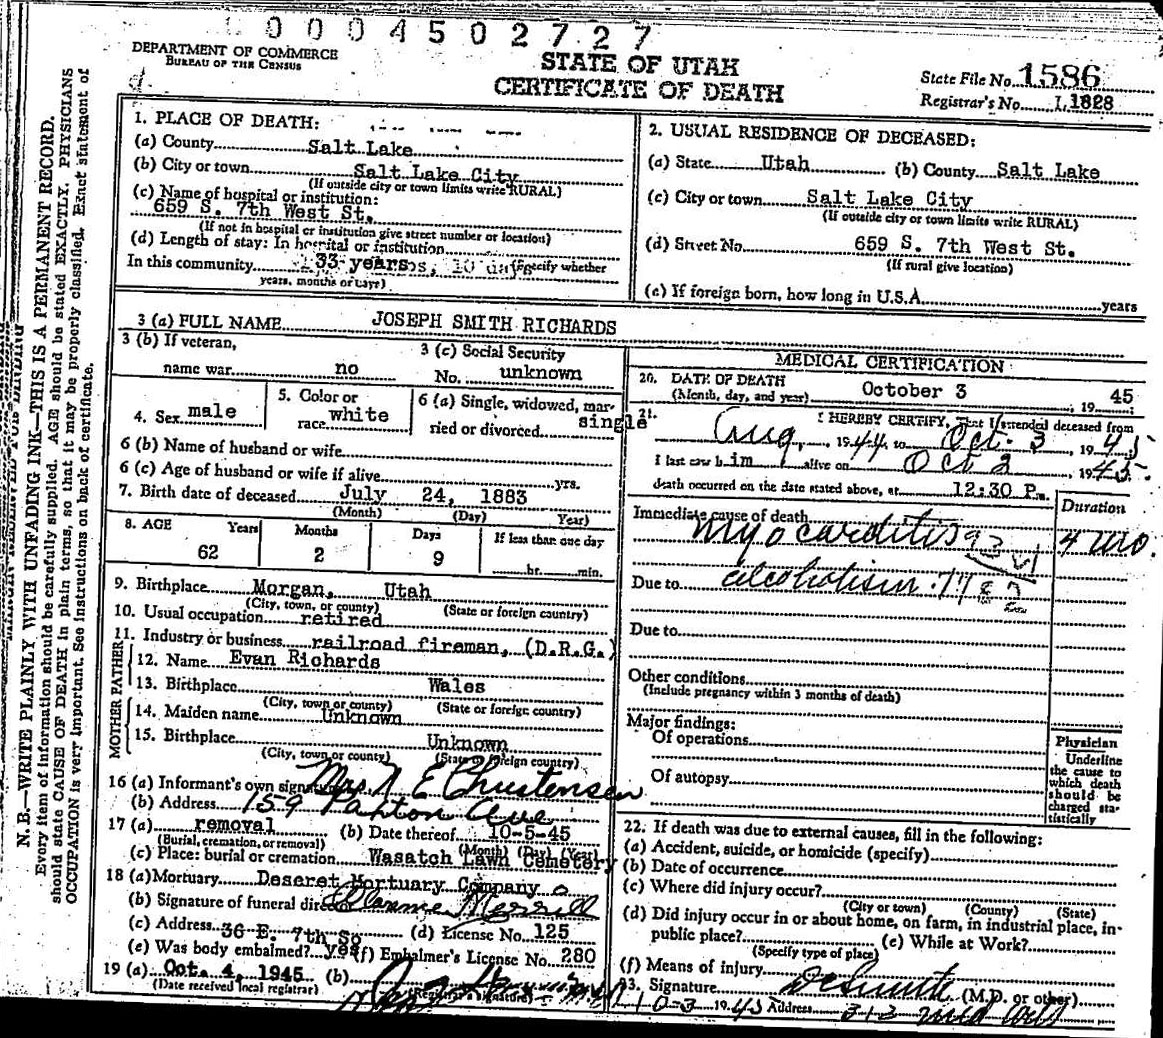 0004502727
DEPARTMENT OF COMMERCE
BUREAU OF THE CENSUS
STATE OF UTAH
CERTIFICATE OF DEATH
State File No. 1586
Registrar's No. 1828
1. PLACE OF DEATH:
(a) County Salt Lake
(b) City or town Salt Lake City
(If outside city or town limits write RURAL)
(c) Name of hospital or institution:
659 S. 7th West St.
(If not in hospital or institution give street number or location)
(d) Length of stay: In hospital or institution
In this community 33 years, 10 days (Specify whether
years, months or days)
2. USUAL RESIDENCE OF DECEASED:
(a) State Utah (b) County Salt Lake
(c) City or town Salt Lake City
(If outside city or town limits write RURAL)
(d) Street No. 659 S. 7th West St.
(If rural give location)
(e) If foreign born, how long in U.S.A. years
3 (a) FULL NAME JOSEPH SMITH RICHARDS
3 (b) If veteran,
name war no
3 (c) Social Security
No. unknown
4. Sex male
5. Color or
race white
6 (a) Single, widowed, mar-
ried or divorced single
6 (b) Name of husband or wife
6 (c) Age of husband or wife if alive yrs.
7. Birth date of deceased July 24, 1883
(Month) (Day) Year)
8. AGE Years Months Days If less than one day
62 2 9 hr. min.
9. Birthplace Morgan, Utah
(City, town, or county) (State or foreign country)
10. Usual occupation retired
11. Industry or business railroad fireman, (D.R.G.)
FATHER
12. Name Evan Richards
13. Birthplace Wales
(City, town or county) (State or foreign country)
MOTHER
14. Maiden name Unknown
15. Birthplace Unknown
(City, town, or county) (State or foreign country)
16 (a) Informant's own signature Mrs. N E Christensen
(b) Address 159 Paxton Ave
17 (a) removal (b) Date thereof 10-5-45
(Burial, cremation, or removal) (Month) (Day) (Year)
(c) Place: burial or cremation Wasatch Lawn Cemetery
18 (a) Mortuary Deseret Mortuary Company
(b) Signature of funeral director Clarence Merrill
(c) Address 36 E. 7th So (d) License No. 125
(e) Was body embalmed? yes (f) Embalmer's License No. 280
19 (a) Oct. 4, 1945 (b)
(Date received local registrar) (Registrar's signature)
MEDICAL CERTIFICATION
20. DATE OF DEATH October 3 19 45
(Month, day, and year)
21. I HEREBY CERTIFY, That I attended deceased from
Aug, 1944 to Oct. 3, 1945
I last saw him alive on Oct 2 1945.
death occurred on the date stated above, at 12:30 P.m.
Duration
Immediate cause of death
Myocarditis 4 mo.
Due to alcoholism
Due to
Other conditions
(Include pregnancy within 3 months of death)
Major findings:
Of operations
Of autopsy
Physician
Underline
the cause to
which death
should be
charged sta-
tistically
22. If death was due to external causes, fill in the following:
(a) Accident, suicide, or homicide (specify)
(b) Date of occurrence
(c) Where did injury occur?
(City or town) (County) (State)
(d) Did injury occur in or about home, on farm, in industrial place, in
public place? (e) While at Work?
(Specify type of place)
(f) Means of injury
23. Signature (M.D. or other)
10-3 1945 Address 313 Med Arts
N. B.—WRITE PLAINLY WITH UNFADING INK—THIS IS A PERMANENT RECORD.
Every item of information should be carefully supplied. AGE should be stated EXACTLY. PHYSICIANS
should state CAUSE OF DEATH in plain terms, so that it may be properly classified. Exact statement of
OCCUPATION is very important. See instructions on back of certificate.